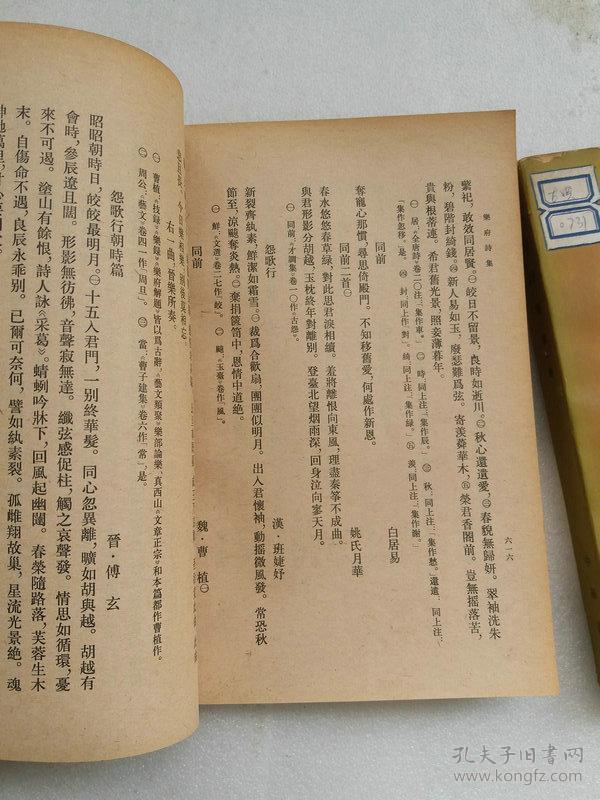 樂府詩集
六一六
縈祀,敢效同居賢。㊀皎日不留景,良時如逝川。㊁秋心還遺愛,㊂春貌無歸妍。翠袖洗朱
粉,碧階封綺錢。㊃新人易如玉,廢瑟難爲弦。寄羨蕣華木,㊄榮君香閣前。豈無搖落苦,
貴與根蒂連。希君舊光景,照妾薄暮年。
㊀居,《全唐詩》卷二〇注:「集作車。」 ㊁時,同上注:「集作辰。」 ㊂秋,同上注:「集作愁。」還遺,同上注:
「集作忽移」,是。 ㊃封,同上作「對」。綺,同上注:「集作綠。」 ㊄羨,同上注:「集作謝。」
同前
白居易
奪寵心那慣,尋思倚殿門。不知移舊愛,何處作新恩。
同前二首㊀
姚氏月華
春水悠悠春草綠,對此思君淚相續。羞將離恨向東風,理盡秦箏不成曲。
與君形影分胡越,玉枕終年對離別。登臺北望烟雨深,回身泣向寥天月。
㊀同前,《才調集》卷一〇作「古怨」。
怨歌行
漢·班婕妤
新裂齊紈素,鮮潔如霜雪。㊀裁爲合歡扇,團團似明月。出入君懷袖,動搖微風發。常恐秋
節至,涼飇奪炎熱。㊁棄捐篋笥中,恩情中道絶。
㊀鮮,《文選》卷二七作「皎」。 ㊁飇,《玉臺》卷一作「風」。
同前
魏·曹植㊀
右一曲,晉樂所奏。
㊀曹植,《技録》、《樂録》、《樂府解題》皆以爲古辭,《藝文類聚》樂部論樂、真西山《文章正宗》和本篇都作曹植作。
㊁周公,《藝文》卷四一作「周旦」。 ㊂當,《曹子建集》卷六作「常」,是。
怨歌行朝時篇
晉·傅玄
昭昭朝時日,皎皎最明月。㊀十五入君門,一別終華髮。同心忽異離,曠如胡與越。胡越有
會時,參辰遼且闊。形影無彷彿,音聲寂無達。纖弦感促柱,觸之哀聲發。情思如循環,憂
來不可遏。塗山有餘恨,詩人詠《采葛》。蜻蛚吟牀下,回風起幽闥。春榮隨路落,芙蓉生木
末。自傷命不遇,良辰永乖別。已爾可奈何,譬如紈素裂。孤雌翔故巢,星流光景絶。魂
孔夫子旧書网
www.kongfz.com